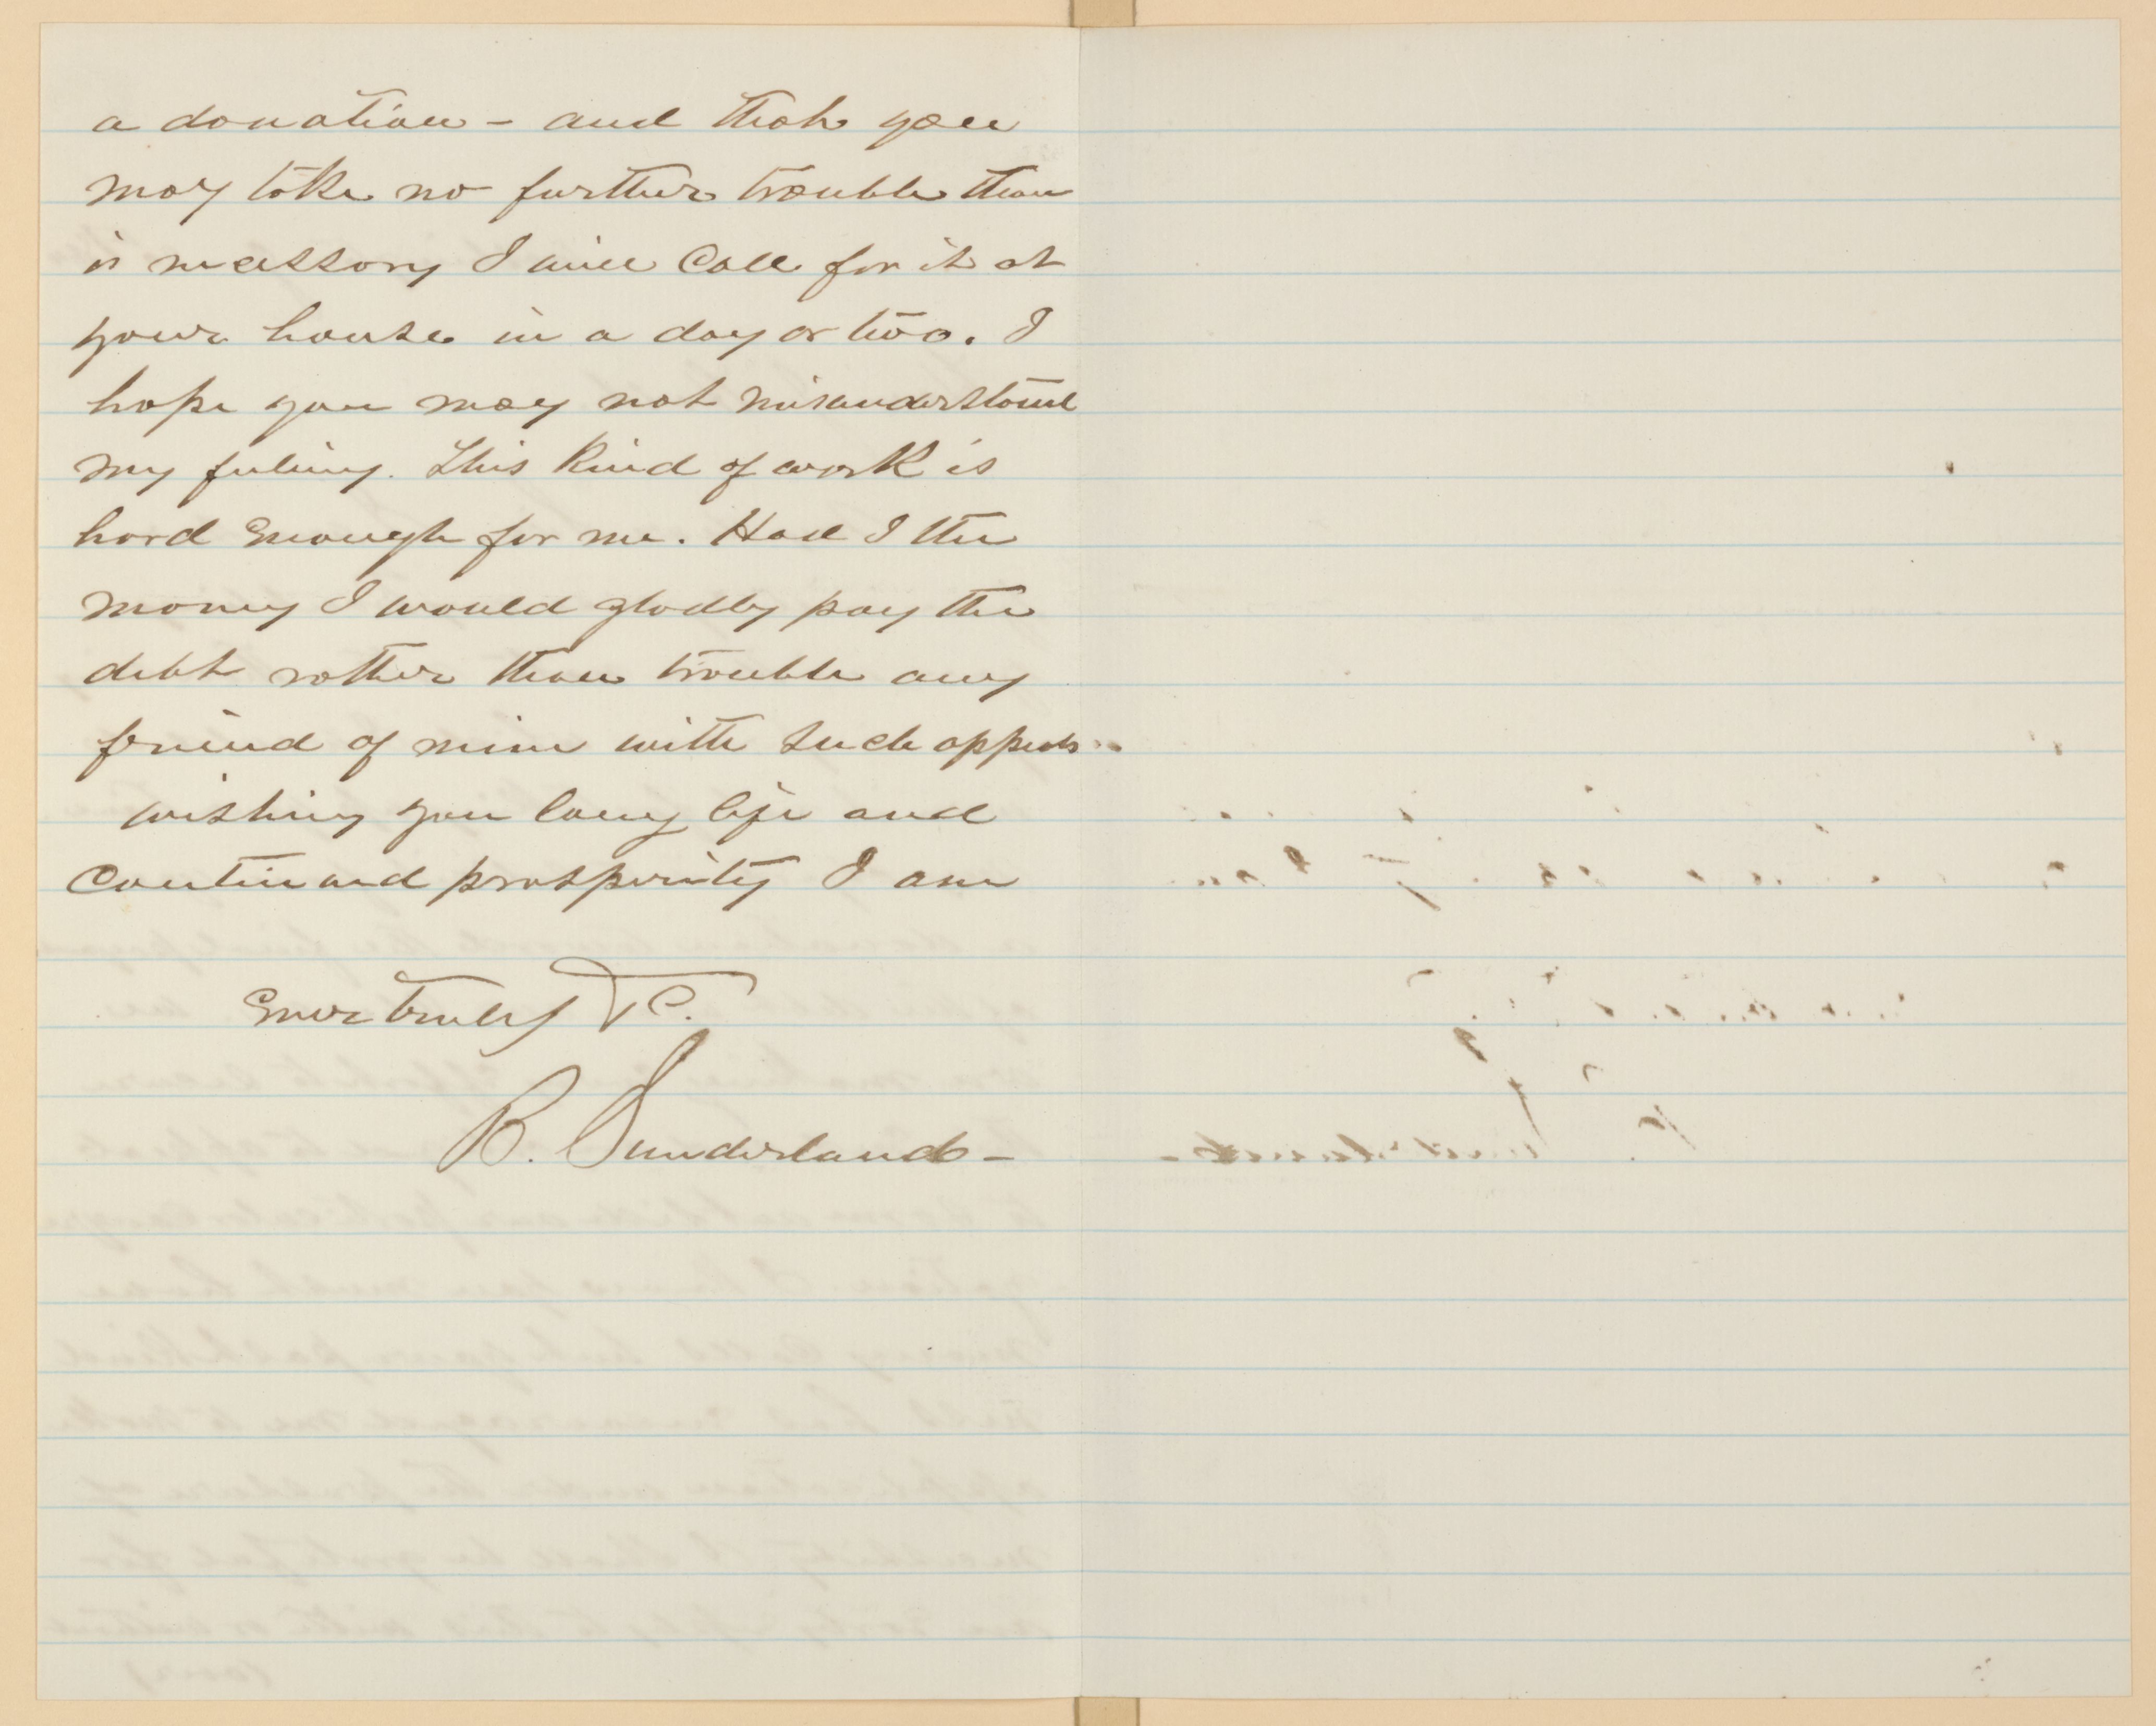 a donation - and that you
may take no further trouble than
is necessary I will call for it at
your house in a day or two. I
hope you may not misunderstand
my feeling. This kind of work is
hard enough for me. Had I the
money I would gladly pay the
debt rather than trouble any
friend of mine with such appeals
wishing you long life and
continued prosperity I am
Ever truly &c.
B. Sunderland -